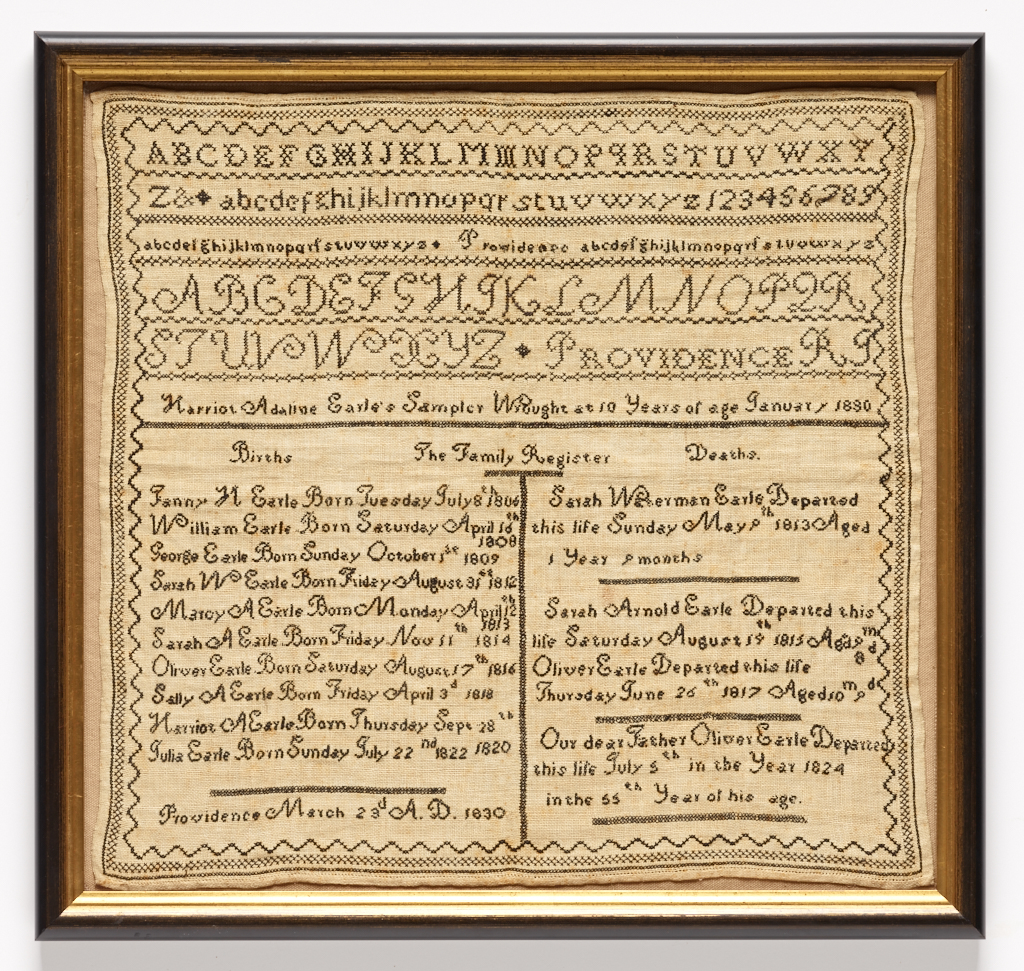 ABCDEFGHIJKLMNOPQRSTUVWXY
Z& abcdefghijklmnopqrstuvwxyz 123456789
abcdefghijklmnopqrſstuvwxyz Providence abcdefghijklmnopqrſstuvwxyz
ABCDEFGHIJKLMNOPQR
STUVWXYZ PROVIDENCE RI
Harriot Adaline Earle's Sampler Wrought at 10 Years of age January 1830
Births The Family Register Deaths.
Fanny H Earle Born Tuesday July 8th 1806
William Earle Born Saturday April 16th
1808
George Earle Born Sunday October 1st 1809
Sarah W Earle Born Friday August 31st 1812
Marcy A Earle Born Monday April 12th
1813
Sarah A Earle Born Friday Nov 11th 1814
Oliver Earle Born Saturday August 17th 1816
Sally A Earle Born Friday April 3d 1818
Harriot A Earle Born Thursday Sept 28th
1820
Julia Earle Born Sunday July 22nd 1822
Providence March 23d A.D. 1830
Sarah Waterman Earle Departed
this life Sunday May 9th 1813 Aged
1 Year 9 months
Sarah Arnold Earle Departed this
life Saturday August 19th 1815 Aged 9m
8d
Oliver Earle Departed this life
Thursday June 26th 1817 Aged 10m 9d
Our dear Father Oliver Earle Departed
this life July 5th in the Year 1824
in the 55th Year of his age.